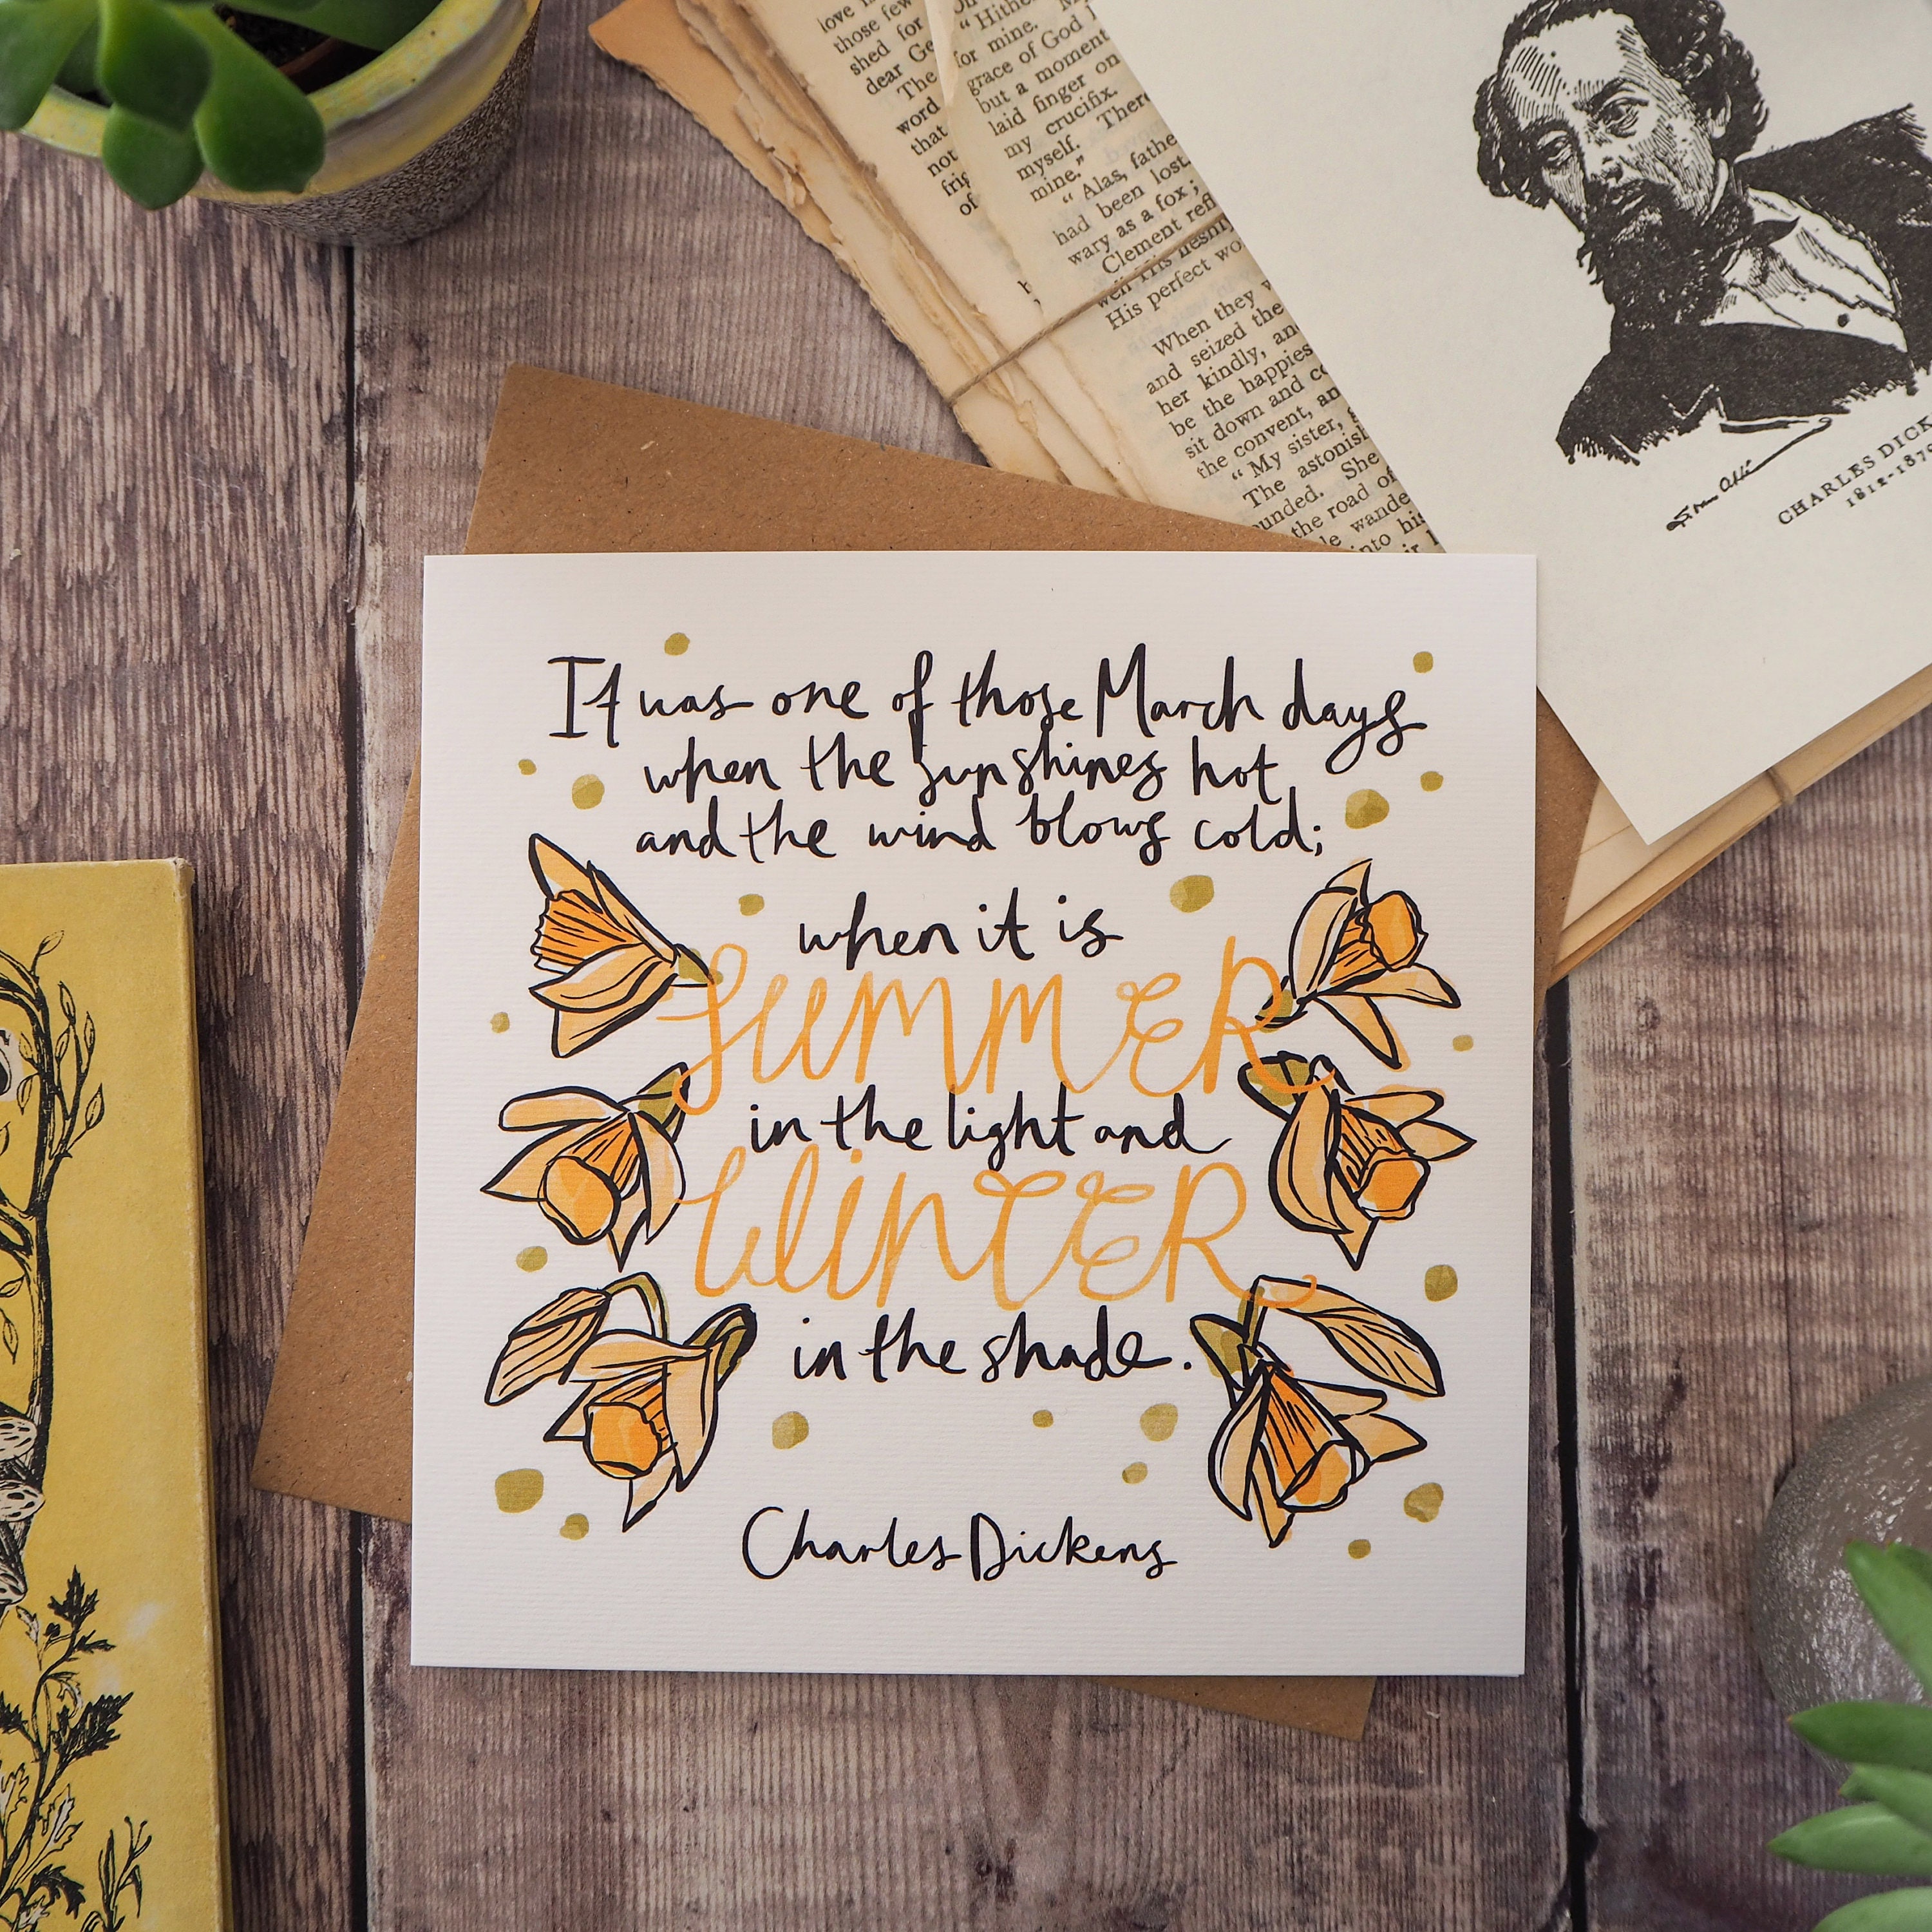 love
those few
shed for
dear Ge
The
word
that
not
frig
of
"Hithe
for mine.
grace of God
but a moment
laid finger on
my crucifix.
myself. There
mine."
"Alas, fathe
had been lost
wary as a fox;
Clement refl
His perfect wo
When they
and seized the
her kindly, an
be the happies
sit down and co
the convent, an
"My sister,
The astonish
ounded. She
the road of
le wande
into his
CHARLES DICK
1812-1870
It was one of those March days
when the sun shines hot
and the wind blows cold;
when it is
SUMMER
in the light and
WINTER
in the shade.
Charles Dickens